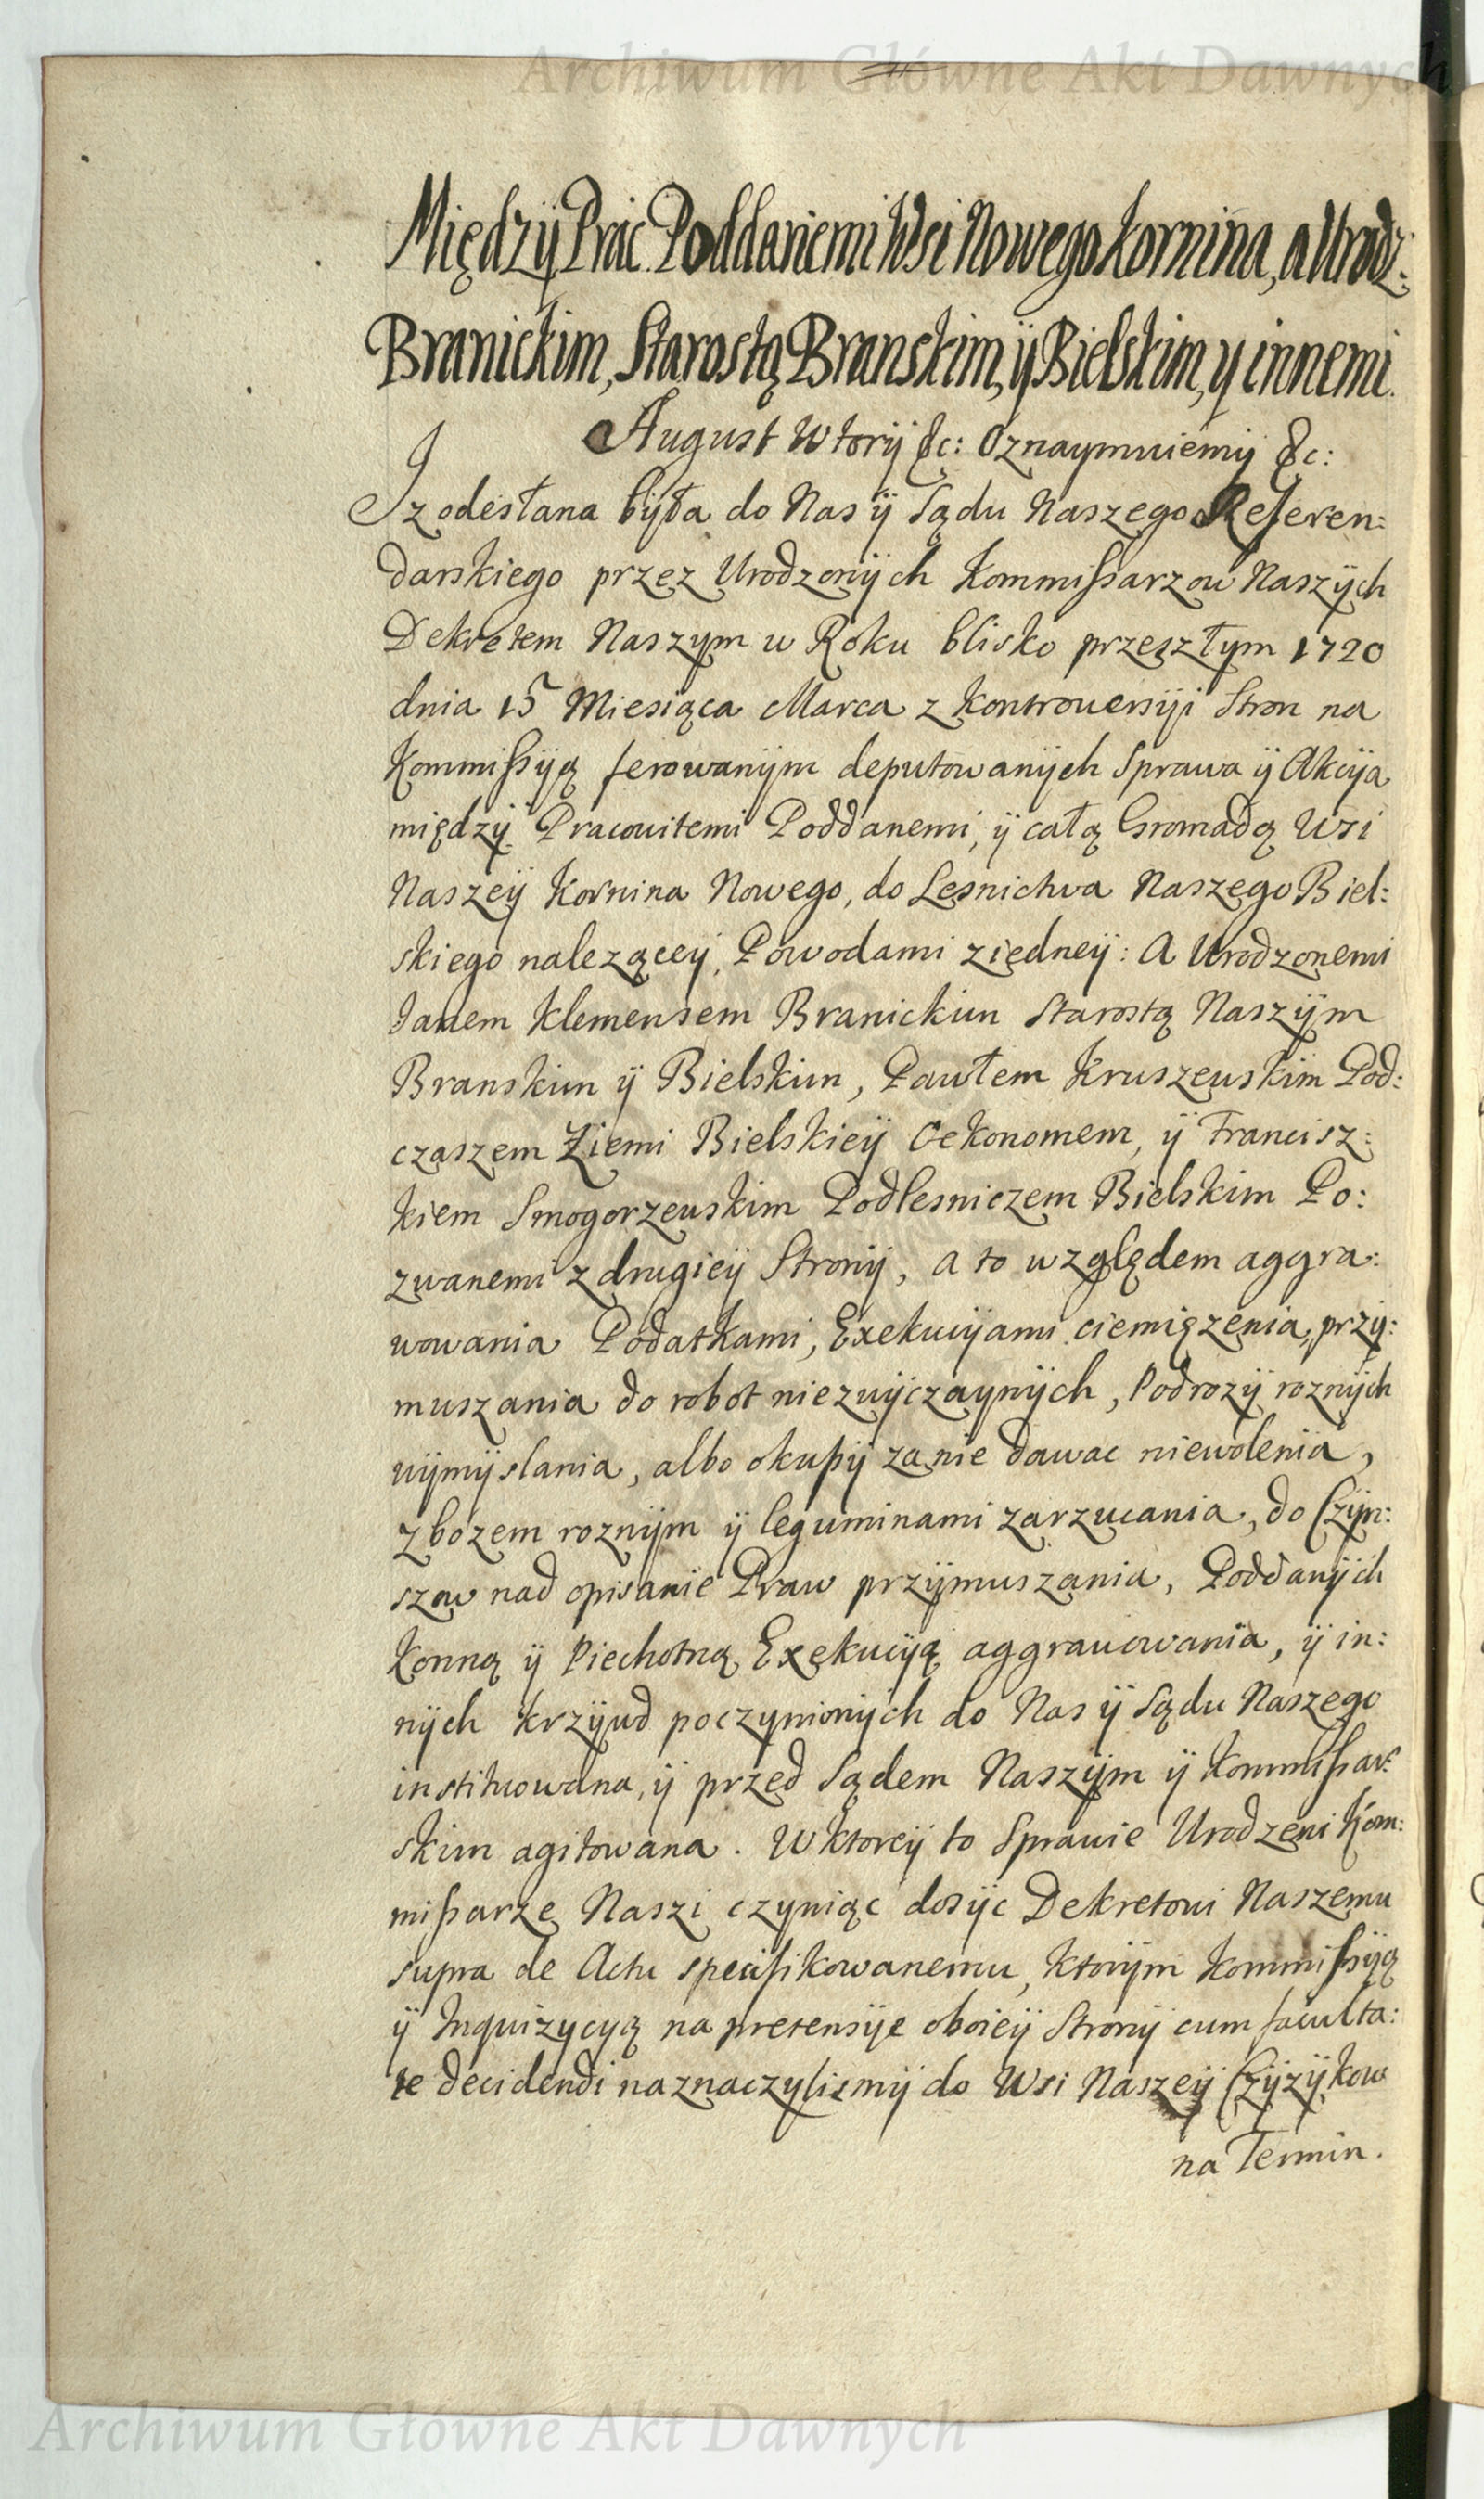 Archiwum Główne Akt Dawnych
Międzÿ Prac. Poddanemi Wsi Nowego Kornina, a Urodz:
Branickim, Starostą Branskim, ÿ Bielskim, y innemi.
August Wtorÿ &c: Oznaymuiemÿ &c:
Iz odesłana bÿła do Nas ÿ Sądu Naszego Referen:
darskiego przez Urodzonÿch Kommissarzow Naszÿch
Dekretem Naszym w Roku blisko przeszłym 1720
dnia 15 Miesiąca Marca z Kontrowersÿi Stron na
Kommissÿą ferowanÿm deputowanÿch Sprawa ÿ Akcÿa
międzÿ Pracowitemi Poddanemi, ÿ całą Gromadą Wsi
Naszeÿ Kornina Nowego, do Lesnictwa Naszego Biel:
skiego nalezącey, Powodami z iedneÿ: A Urodzonemi
Janem Klemensem Branickim Starostą Naszÿm
Branskim ÿ Bielskim, Pawłem Kruszewskim Pod:
czaszem Ziemi Bielskieÿ Oekonomem, ÿ Francisz:
kiem Smogorzewskim Podlesniczem Bielskim Po:
zwanemi z drugieÿ Stronÿ, a to względem aggra:
wowania Podatkami, Exekucÿami ciemięzenia, przÿ:
muszania do robot niezwÿczaynÿch, Podrozÿ roznÿch
wÿmÿslania, albo okupÿ za nie dawac niewolenia,
zbozem roznÿm ÿ leguminami zarzucania, do Czÿn:
szow nad opisanie Praw przÿmuszania, Poddanÿch
Konną ÿ Piechotną Exekucÿą aggrawowania, ÿ in:
nÿch krzÿwd poczynionÿch do Nas ÿ Sądu Naszego
instituowana, ÿ przed Sądem Naszÿm ÿ Kommissar:
skim agitowana. W ktoreÿ to Sprawie Urodzeni Kom:
missarze Naszi czyniąc dosÿc Dekretowi Naszemu
supra de Actu specifikowanemu, ktorÿm Kommissÿą
ÿ Inquizycyą na pretensÿe oboieÿ Stronÿ cum faculta:
te decidendi naznaczylismÿ do Wsi Naszeÿ Czÿzÿkow
na Termin.
Archiwum Główne Akt Dawnych